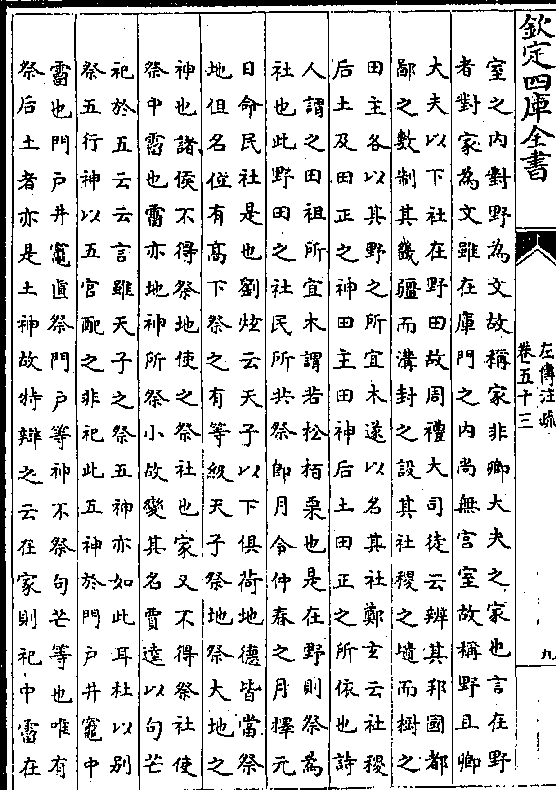 欽定四庫全書
左傳注疏
卷五十三
九
室之內對野為文故稱家非卿大夫之家也言在野
者對家為文雖在庫門之內尚無宮室故稱野且卿
大夫以下社在野田故周禮大司徒云辨其邦國都
鄙之數制其畿疆而溝封之設其社稷之壝而樹之
田主各以其野之所宜木遂以名其社鄭玄云社稷
后土及田正之神田主田神后土田正之所依也詩
人謂之田祖所宜木謂若松栢栗也是在野則祭為
社也此野田之社民所共祭即月令仲春之月擇元
日命民社是也劉炫云天子以下俱荷地德皆當祭
地但名位有高下祭之有等級天子祭地祭大地之
神也諸侯不得祭地使之祭社也家又不得祭社使
祭中霤也霤亦地神所祭小故變其名賈逵以句芒
祀於五云云言雖天子之祭五神亦如此耳杜以別
祭五行神以五官配之非祀此五神於門戶井竈中
霤也門戶井竈直祭門戶等神不祭句芒等也唯有
祭后土者亦是土神故特辯之云在家則祀中霤在